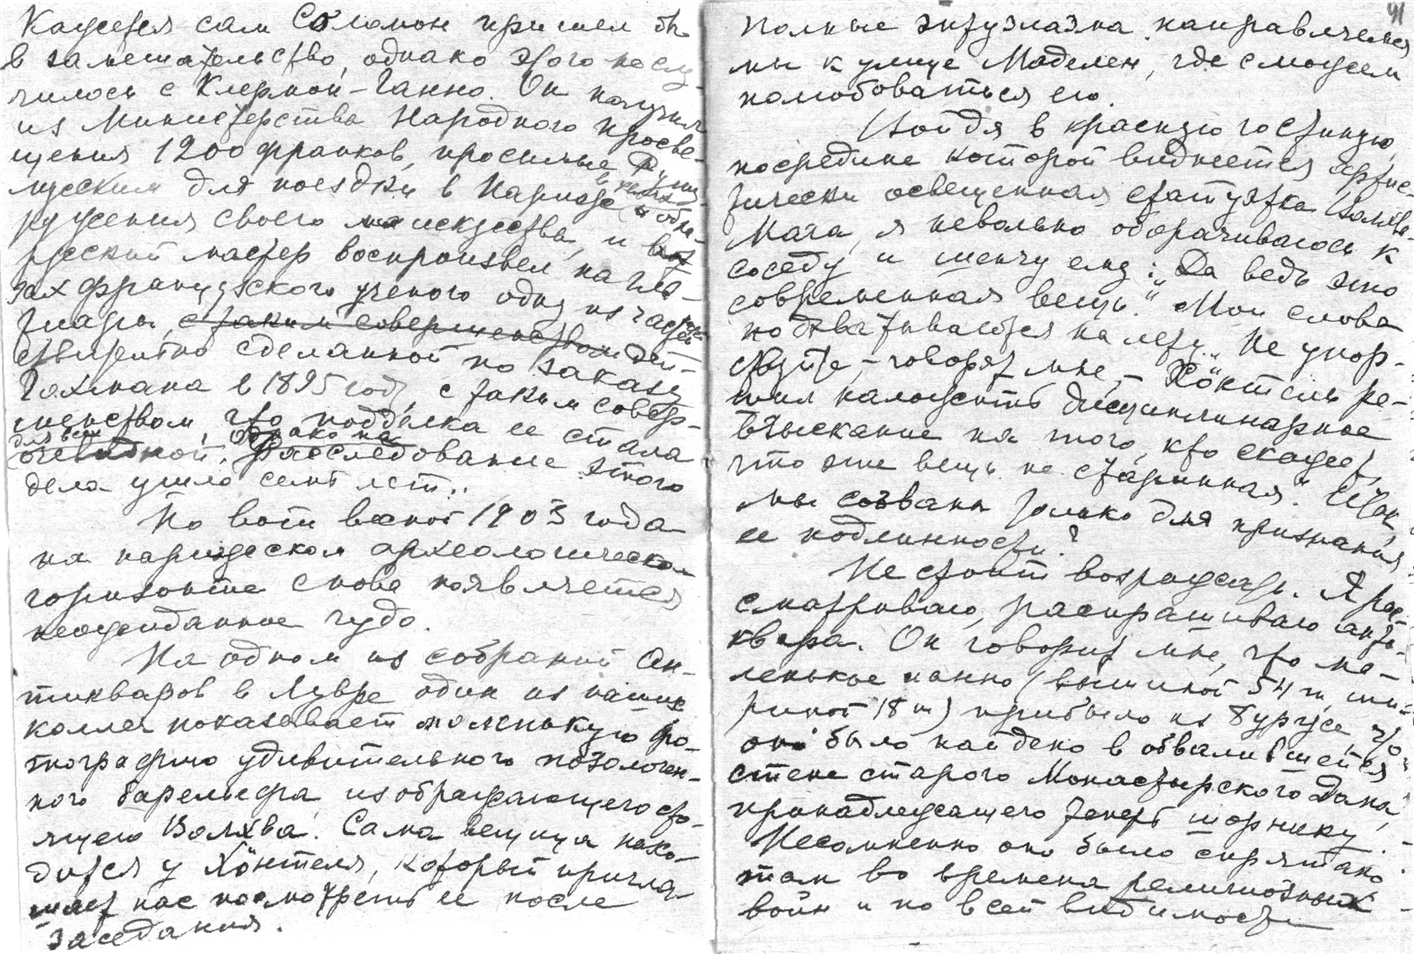 Кажется сам Соломон пришел бы
в замешательство, однако этого не слу
чилось с Клермон-Ганно. Он получил
из Министерства Народного просве-
щения 1200 франков, просимые
для поездки в Париж в целях
ружения своего искусства, и
русский мастер воспроизвел на гла-
зах французского ученого одну из частей
тиары,
сделанной по заказу
Гохмана в 1895 году, с таким совер-
шенством, что подделка ее стала
для всех очевидной. Однако на расследование этого
дела ушло семь лет..
Но вот весной 1903 года
на парижском археологическом
горизонте снова появляется
неожиданное чудо.
На одном из собраний Ан-
тикваров в Лувре один из наших
коллег показывает маленькую фо-
тографию удивительного позолочен-
ного барельефа, изображающего сто-
ящего Волхва. Сама вещица нахо-
дится у Хёнтеля, который пригла-
шает нас посмотреть ее после
заседания.
91
полные энтузиазма направляемся
мы к улице Маделен, где сможем
полюбоваться ею.
Войдя в красную гостиную,
посредине которой виднеется артис-
тически освещенная статуэтка Волхва-
Мага, я невольно оборачиваюсь к
соседу и шепчу ему: "Да ведь это
современная вещь". Мои слова
подхватываются на лету. "Не упор-
ствуйте, – говорят мне, – Хёнтель ре-
шил наложить дисциплинарное
взыскание на того, кто скажет,
что эта вещь не старинная". Итак,
мы созваны только для признания
ее подлинности?
Не стоит возражать. Я рас-
сматриваю, распрашиваю анти-
квара. Он говорит мне, что ма-
ленькое панно (вышиной 54 m, ши-
риной 18 m) прибыло из Буржа, что
оно было найдено в обвалившейся
стене старого Монастырского Дома,
принадлежащего теперь шорнику.
Несомненно оно было спрятано
там во времена религиозных
войн и по всей видимости